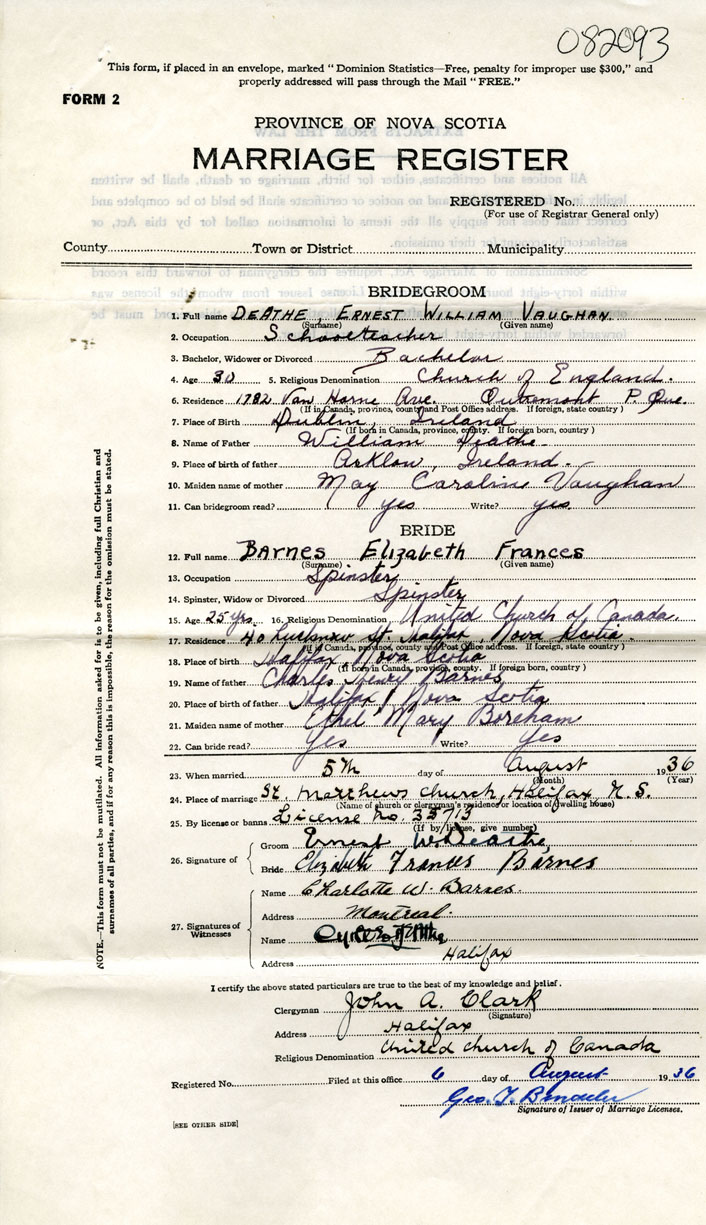 082093
This form, if placed in an envelope, marked "Dominion Statistics—Free, penalty for improper use $300," and
properly addressed will pass through the Mail "FREE."
FORM 2
PROVINCE OF NOVA SCOTIA
MARRIAGE REGISTER
REGISTERED No.
(For use of Registrar General only)
County Town or District Municipality
BRIDEGROOM
1. Full name DEATHE, ERNEST WILLIAM VAUGHAN.
(Surname) (Given name)
2. Occupation Schoolteacher
3. Bachelor, Widower or Divorced Bachelor
4. Age 30 5. Religious Denomination Church of England.
6. Residence 1782 Van Horne Ave. Outremont P. Que
(If in Canada, province, county and Post Office address. If foreign, state country)
7. Place of Birth Dublin, Ireland
(If born in Canada, province, county. If foreign born, country)
8. Name of Father William Deathe
9. Place of birth of father Arklow, Ireland.
10. Maiden name of mother May Caroline Vaughan
11. Can bridegroom read? yes Write? yes
BRIDE
12. Full name BARNES Elizabeth Frances
(Surname) (Given name)
13. Occupation Spinster
14. Spinster, Widow or Divorced Spinster
15. Age 25 yrs. 16. Religious Denomination United Church of Canada.
17. Residence 40 Lucknow St. Halifax, Nova Scotia.
(If in Canada, province, county and Post Office address. If foreign, state country)
18. Place of birth Halifax Nova Scotia
(If born in Canada, province, county. If foreign born, country)
19. Name of father Charles Henry Barnes
20. Place of birth of father Halifax, Nova Scotia
21. Maiden name of mother Ethel Mary Boreham
22. Can bride read? Yes Write? Yes
23. When married 5th day of August 1936
(Month) (Year)
24. Place of marriage St. Matthews Church, Halifax, N.S.
(Name of church or clergyman's residence or location of dwelling house)
25. By license or banns License No. 33713
(If by license, give number)
26. Signature of
Groom Ernest W. Deathe
Bride Elizabeth Frances Barnes
27. Signatures of Witnesses
Name Charlotte W. Barnes.
Address Montreal.
Name
Address Halifax
I certify the above stated particulars are true to the best of my knowledge and belief.
Clergyman John A. Clark
(Signature)
Address Halifax
Religious Denomination United Church of Canada
Registered No. Filed at this office 6 day of August 1936
Geo. T.
Signature of Issuer of Marriage Licenses.
[SEE OTHER SIDE]
NOTE.—This form must not be mutilated. All information asked for is to be given, including full Christian and
surnames of all parties, and if for any reason this is impossible, the reason for the omission must be stated.